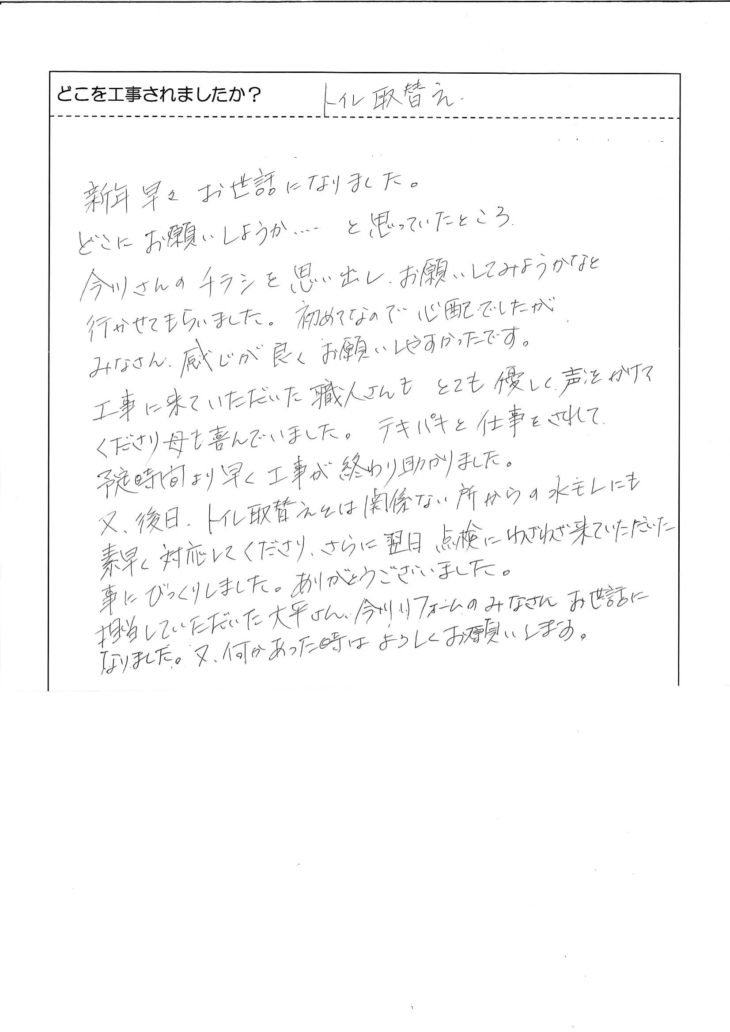 どこを工事されましたか? トイレ取替え.
新年早々 お世話になりました。
どこに お願いしようか‥‥ と思っていたところ.
今川さんの チラシを 思い出し、お願いしてみようかなと
行かせてもらいました。 初めてなので 心配でしたが
みなさん、感じが良く お願いしやすかったです。
工事に来ていただいた職人さんも とても 優しく、声をかけて
くださり母も喜んでいました。 テキパキと 仕事をされて
予定時間より早く工事が 終わり助かりました。
又、後日、トイレ取替えとは関係ない所からの水モレにも
素早く 対応してくださり、さらに翌日 点検に わざわざ来ていただいた
事に びっくりしました。ありがとうございました。
担当していただいた大平さん、今川リフォームのみなさん お世話に
なりました。又、何かあった時は よろしくお願いします。